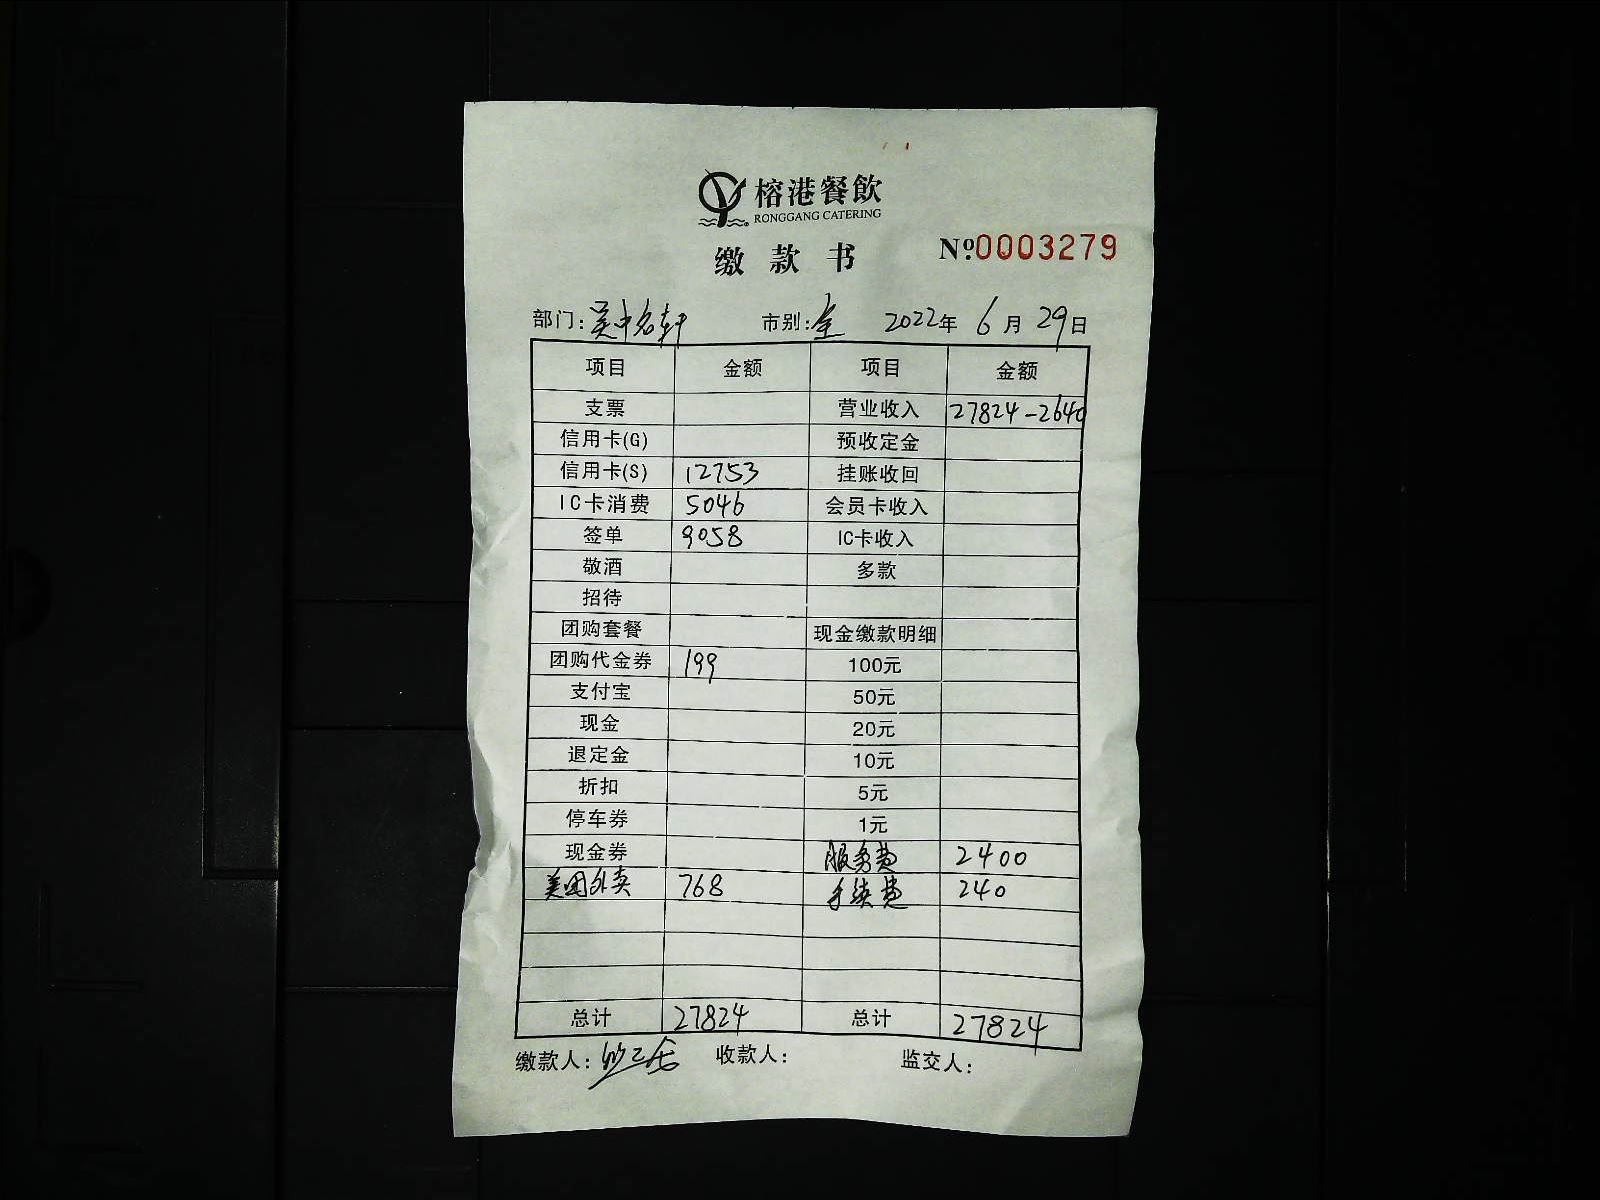 榕港餐飲
RONGGANG CATERING
缴款书 Nº:0003279
部门: 吴中名轩 市别: 全 2022年 6月 29日
项目 金额 项目 金额
支票 营业收入 27824-2640
信用卡(G) 预收定金
信用卡(S) 12753 挂账收回
IC卡消费 5046 会员卡收入
签单 9058 IC卡收入
敬酒 多款
招待
团购套餐 现金缴款明细
团购代金券 199 100元
支付宝 50元
现金 20元
退定金 10元
折扣 5元
停车券 1元
现金券 服务费 2400
美团外卖 768 手续费 240
总计 27824 总计 27824
缴款人: 收款人: 监交人: